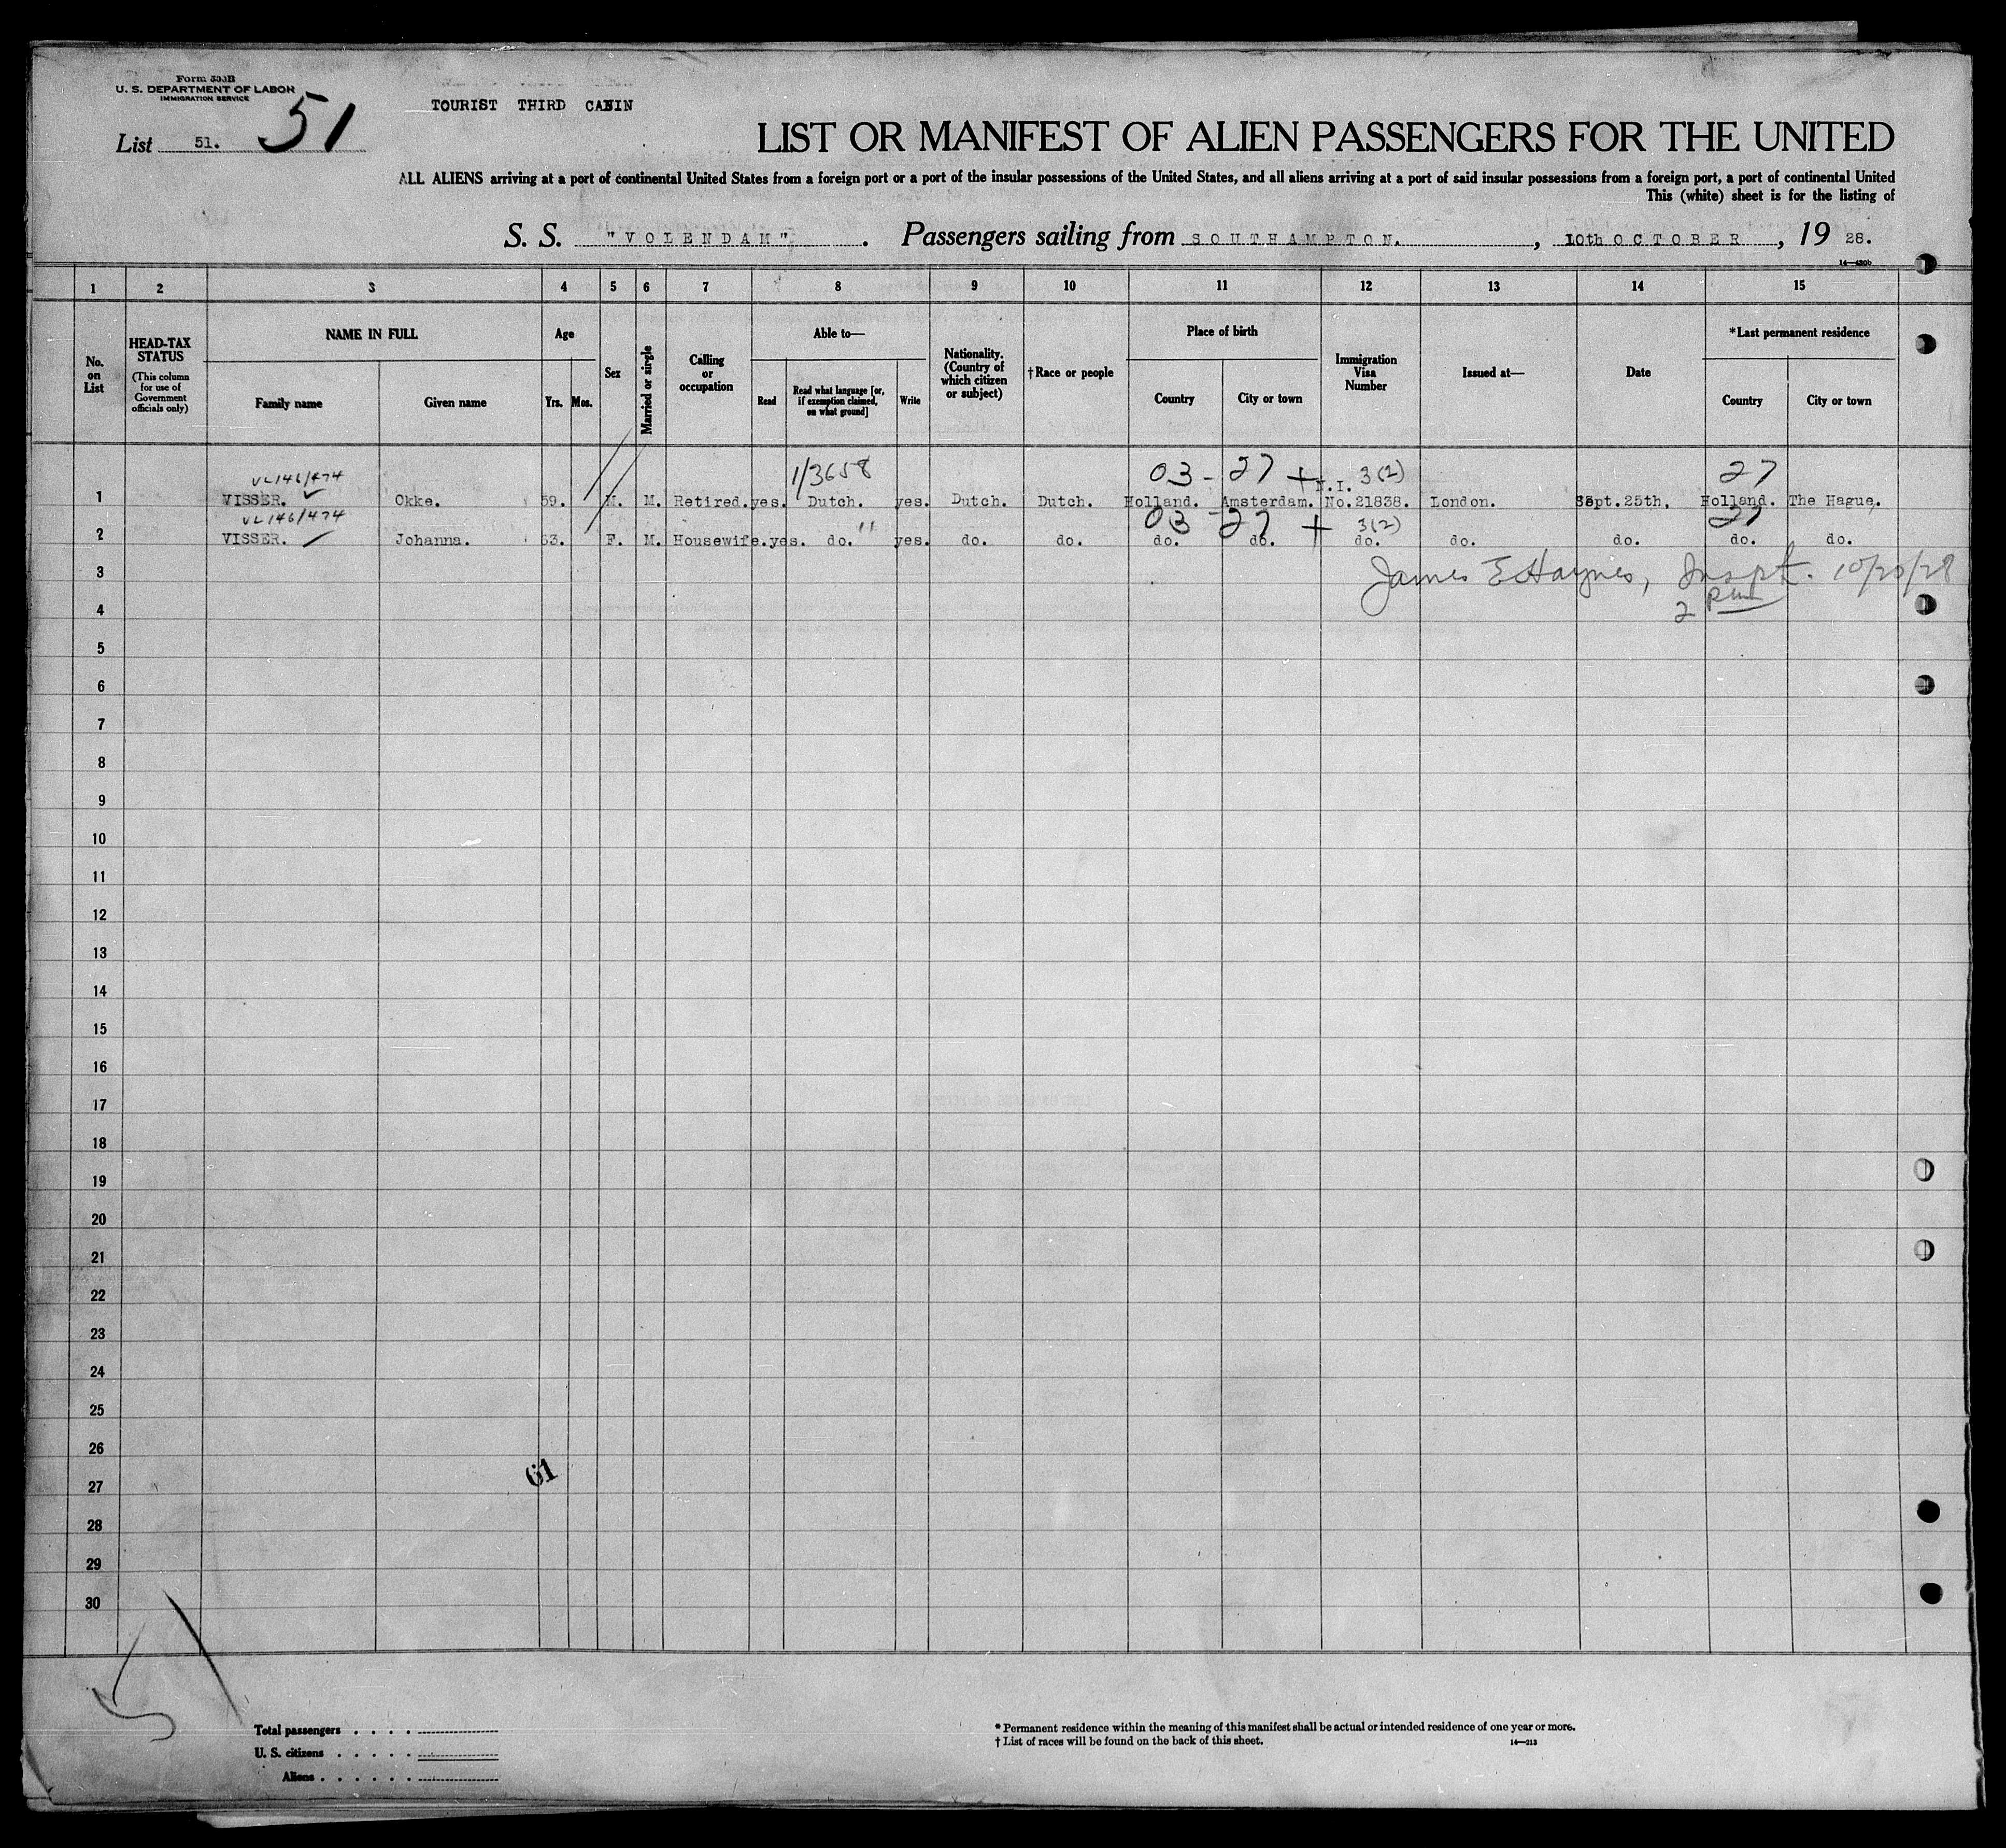 Form 500B
U. S. DEPARTMENT OF LABOR
IMMIGRATION SERVICE
List 51. 51
TOURIST THIRD CABIN
LIST OR MANIFEST OF ALIEN PASSENGERS FOR THE UNITED
ALL ALIENS arriving at a port of continental United States from a foreign port or a port of the insular possessions of the United States, and all aliens arriving at a port of said insular possessions from a foreign port, a port of continental United
This (white) sheet is for the listing of
S. S. "VOLENDAM". Passengers sailing from SOUTHAMPTON. , 10th OCTOBER , 19 28.
14—430b
1 2 3 4 5 6 7 8 9 10 11 12 13 14 15
No. on List
HEAD-TAX STATUS
(This column for use of Government officials only)
NAME IN FULL
Family name
Given name
Age
Yrs.
Mos.
Sex
Married or single
Calling or occupation
Able to—
Read
Read what language [or, if exemption claimed, on what ground]
Write
Nationality. (Country of which citizen or subject)
†Race or people
Place of birth
Country
City or town
Immigration Visa Number
Issued at—
Date
*Last permanent residence
Country
City or town
VL146/474 1/3658 03 - 27 + 3(2) 27
1 VISSER. ✓ Okke. 59. M. M. Retired. yes. Dutch. yes. Dutch. Dutch. Holland. Amsterdam. N.I. No.21838. London. Sept.25th. Holland. The Hague.
VL146/474 " 03 - 27 + 3(2) 27
2 VISSER. ✓ Johanna. 53. F. M. Housewife. yes. do. yes. do. do. do. do. do. do. do. do. do.
3 James E Haynes, Inspt. 10/20/28
4 2 pm
5
6
7
8
9
10
11
12
13
14
15
16
17
18
19
20
21
22
23
24
25
26
61
27
28
29
30
Total passengers . . . .
U. S. citizens . . . . .
Aliens . . . . . .
* Permanent residence within the meaning of this manifest shall be actual or intended residence of one year or more.
† List of races will be found on the back of this sheet.
14—213